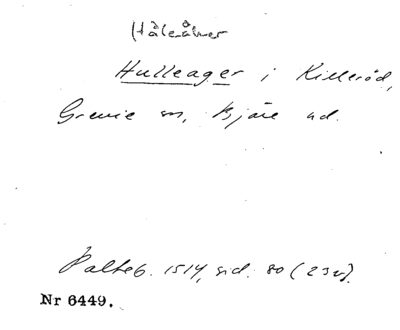 (Håleåker
Hulleager i Killeröd,
Grevie sn, Bjäre hd.
Palteb. 1514, sid. 80 (23v).
Nr 6449.